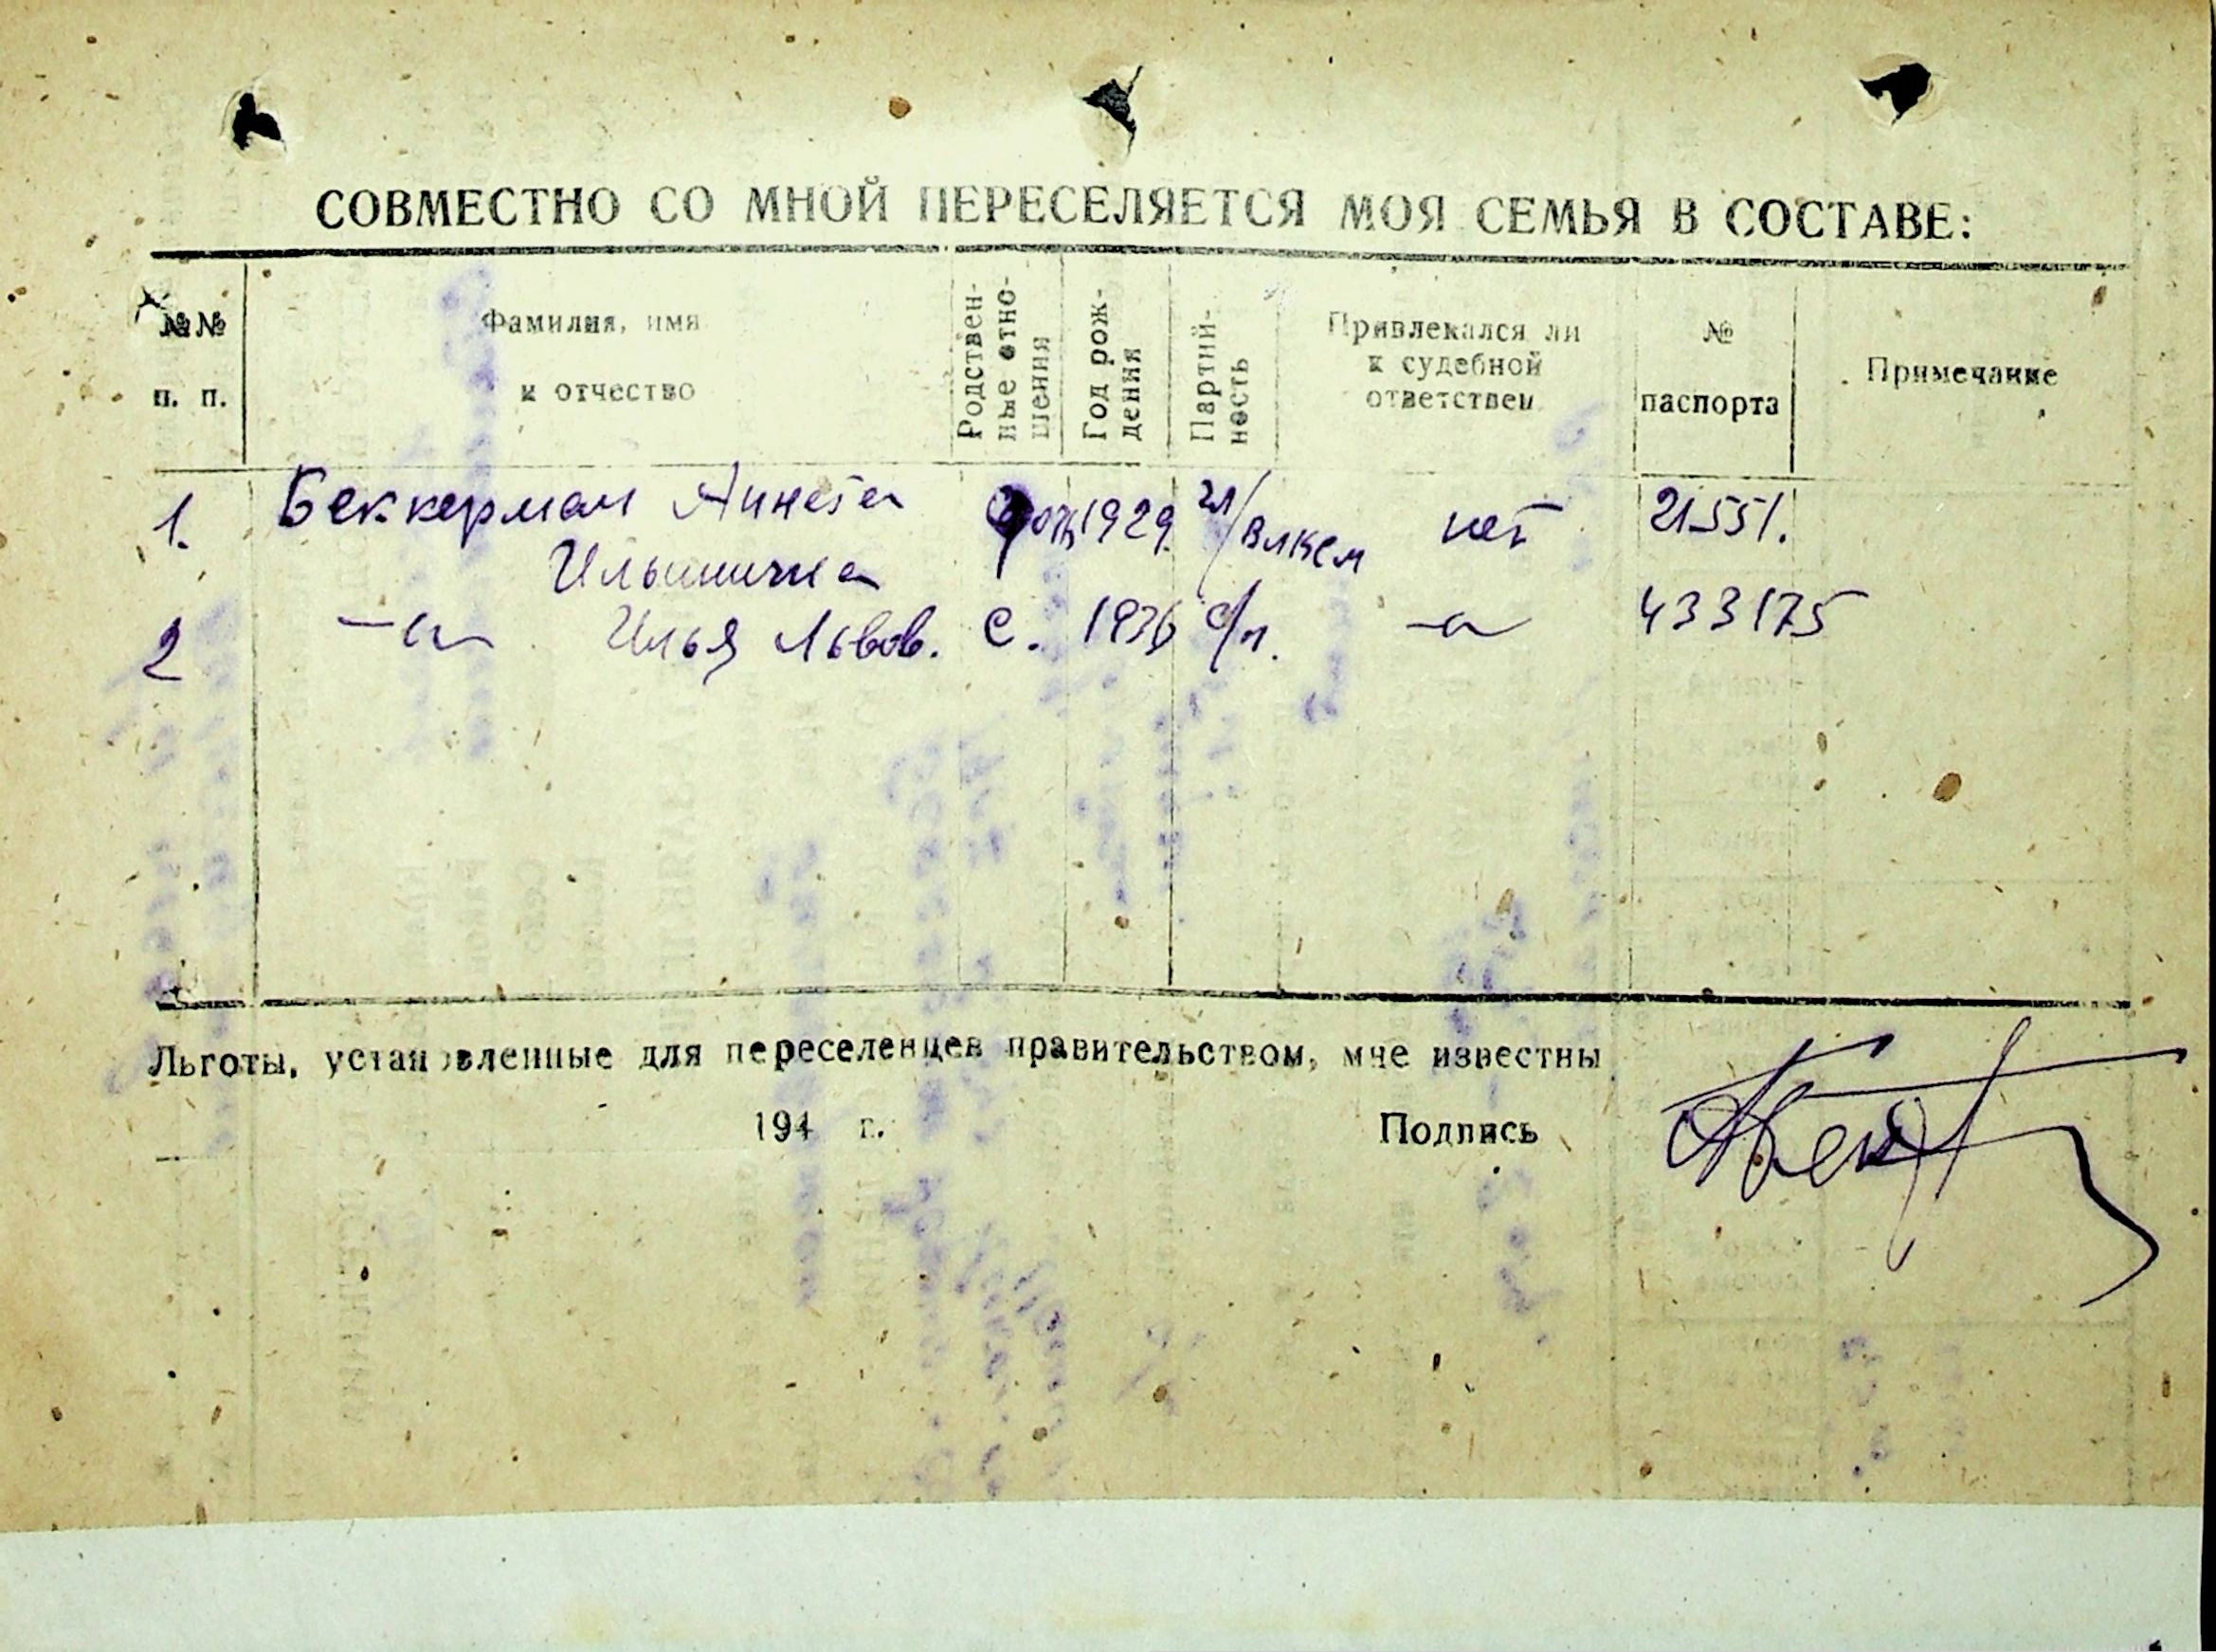 СОВМЕСТНО СО МНОЙ ПЕРЕСЕЛЯЕТСЯ МОЯ СЕМЬЯ В СОСТАВЕ:
№№ п. п.
Фамилия, имя и отчество
Родствен-
ные отно-
шения
Год рож-
дения
Партий-
ность
Привлекался ли
к судебной
ответствен
№
паспорта
Примечание
1. Беккерман Аннета 1929. чл/влксм нет 21551.
Ильинична
2 -"- Илья Львов. с. 1936 б/п. -"- 433175
Льготы, установленные для переселенцев правительством, мне известны
194 г. Подпись